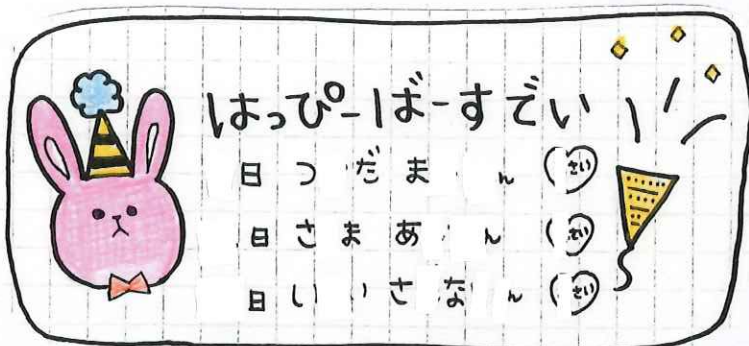 はっぴーばーすでい
日 つ だ ま ん (さい)
日 さ ま あ ん (さい)
日 い い さ な ん (さい)